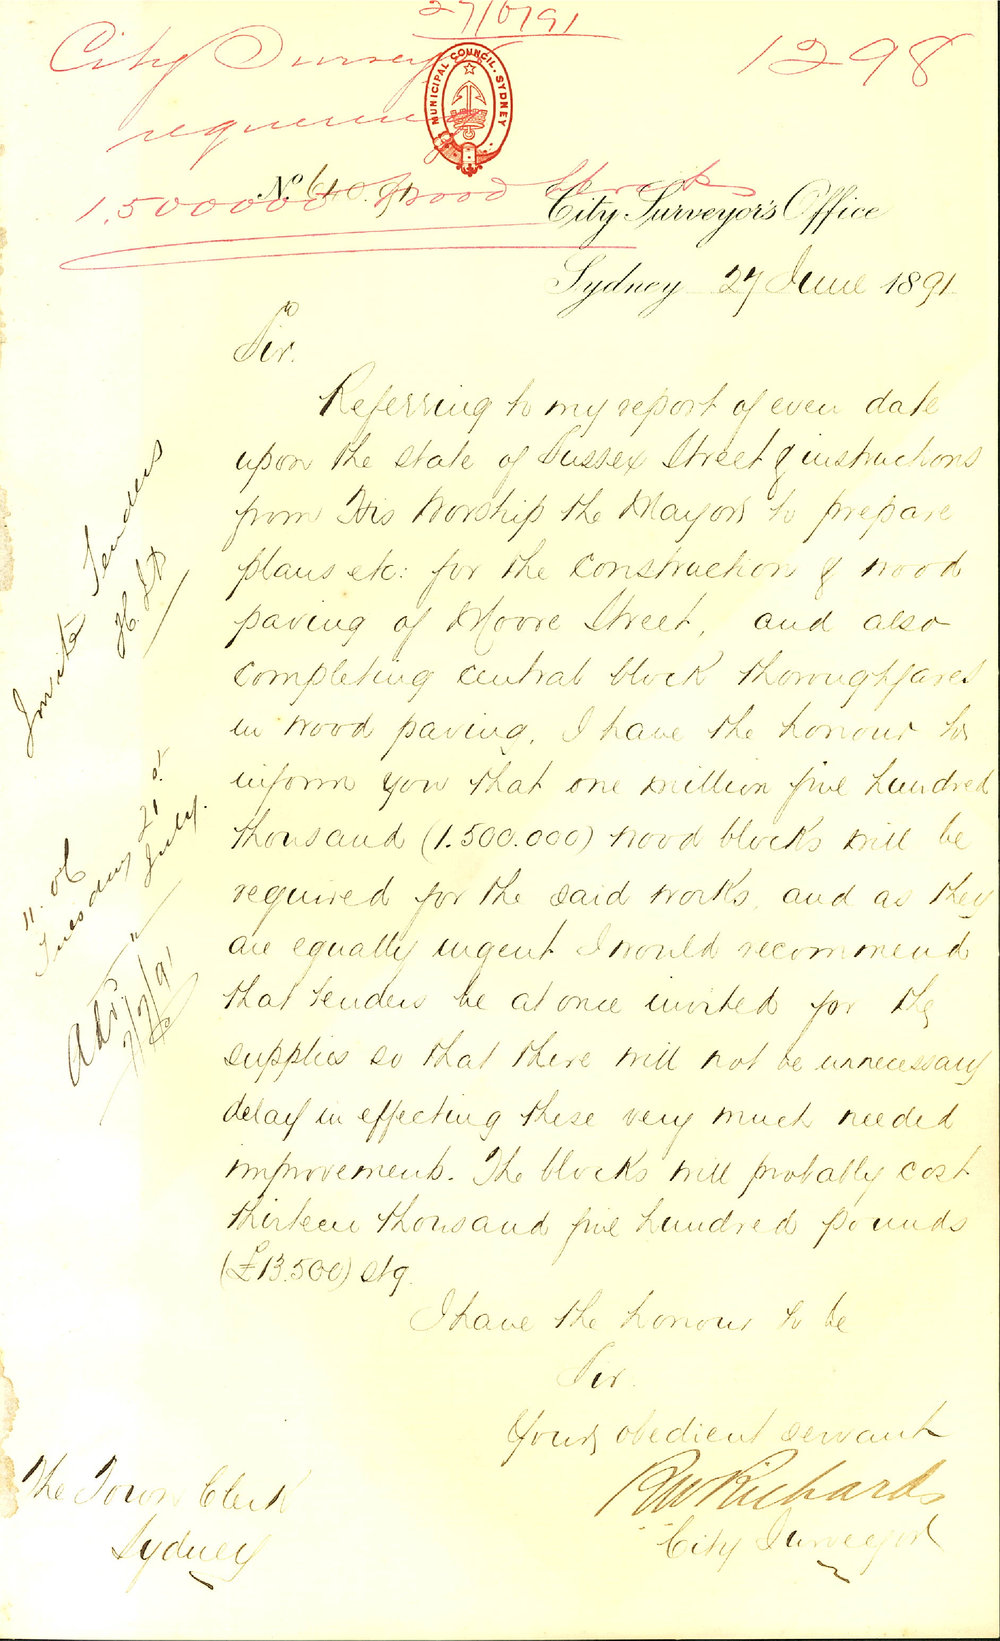 27/6/91
City Surveyor
1298
requiring
1,500000 wood blocks
MUNICIPAL COUNCIL. SYDNEY
No. 640.91
City Surveyor's Office
Sydney 27 June 1891
Sir.
Referring to my report of even date
upon the state of Sussex Street & instructions
from His Worship the Mayor to prepare
plans etc: for the construction & wood
paving of Moore Street, and also
completing central block thoroughfares
in wood paving, I have the honour to
inform you that one million five hundred
thousand (1.500.000) wood blocks will be
required for the said works, and as they
are equally urgent I would recommend
that tenders be at once invited for the
supplies so that there will not be unnecessary
delay in effecting these very much needed
improvements. The blocks will probably cost
thirteen thousand five hundred pounds
(£13.500) stg.
I have the honour to be
Sir.
Your obedient servant
RW Richards
City Surveyor
The Town Clerk
Sydney
Invite Tenders
11. oc
Tuesday 21st
July.
Adv
2/7/91